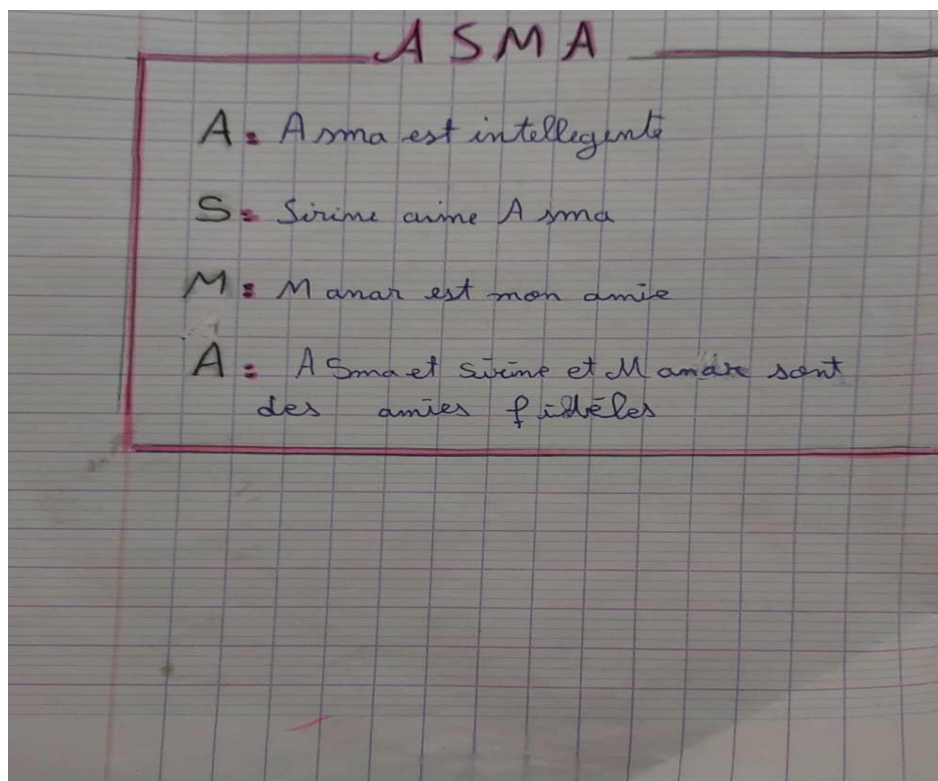 ASMA
A = Asma est intellegente
S = Sirine aime Asma
M = Manar est mon amie
A = ASma et sirine et Manar sont
des amies fidèles